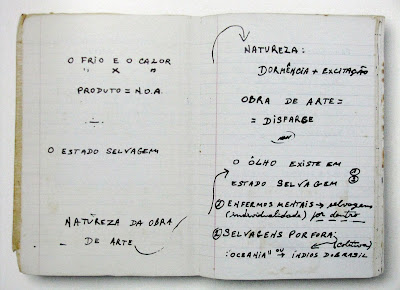 O FRIO E O CALOR
" X "
PRODUTO = N.O.A.
O ESTADO SELVAGEM
NATUREZA DA OBRA
DE ARTE
NATUREZA:
DORMÊNCIA + EXCITAÇÃO
OBRA DE ARTE =
= DISPARGE
O ÔLHO EXISTE EM
ESTADO SELVAGEM
① ENFERMOS MENTAIS → selvagens
(individualidade) por dentro
② SELVAGENS POR FORA:
(coletiva)
"OCEANIA" OU → ÍNDIOS DO BRASIL